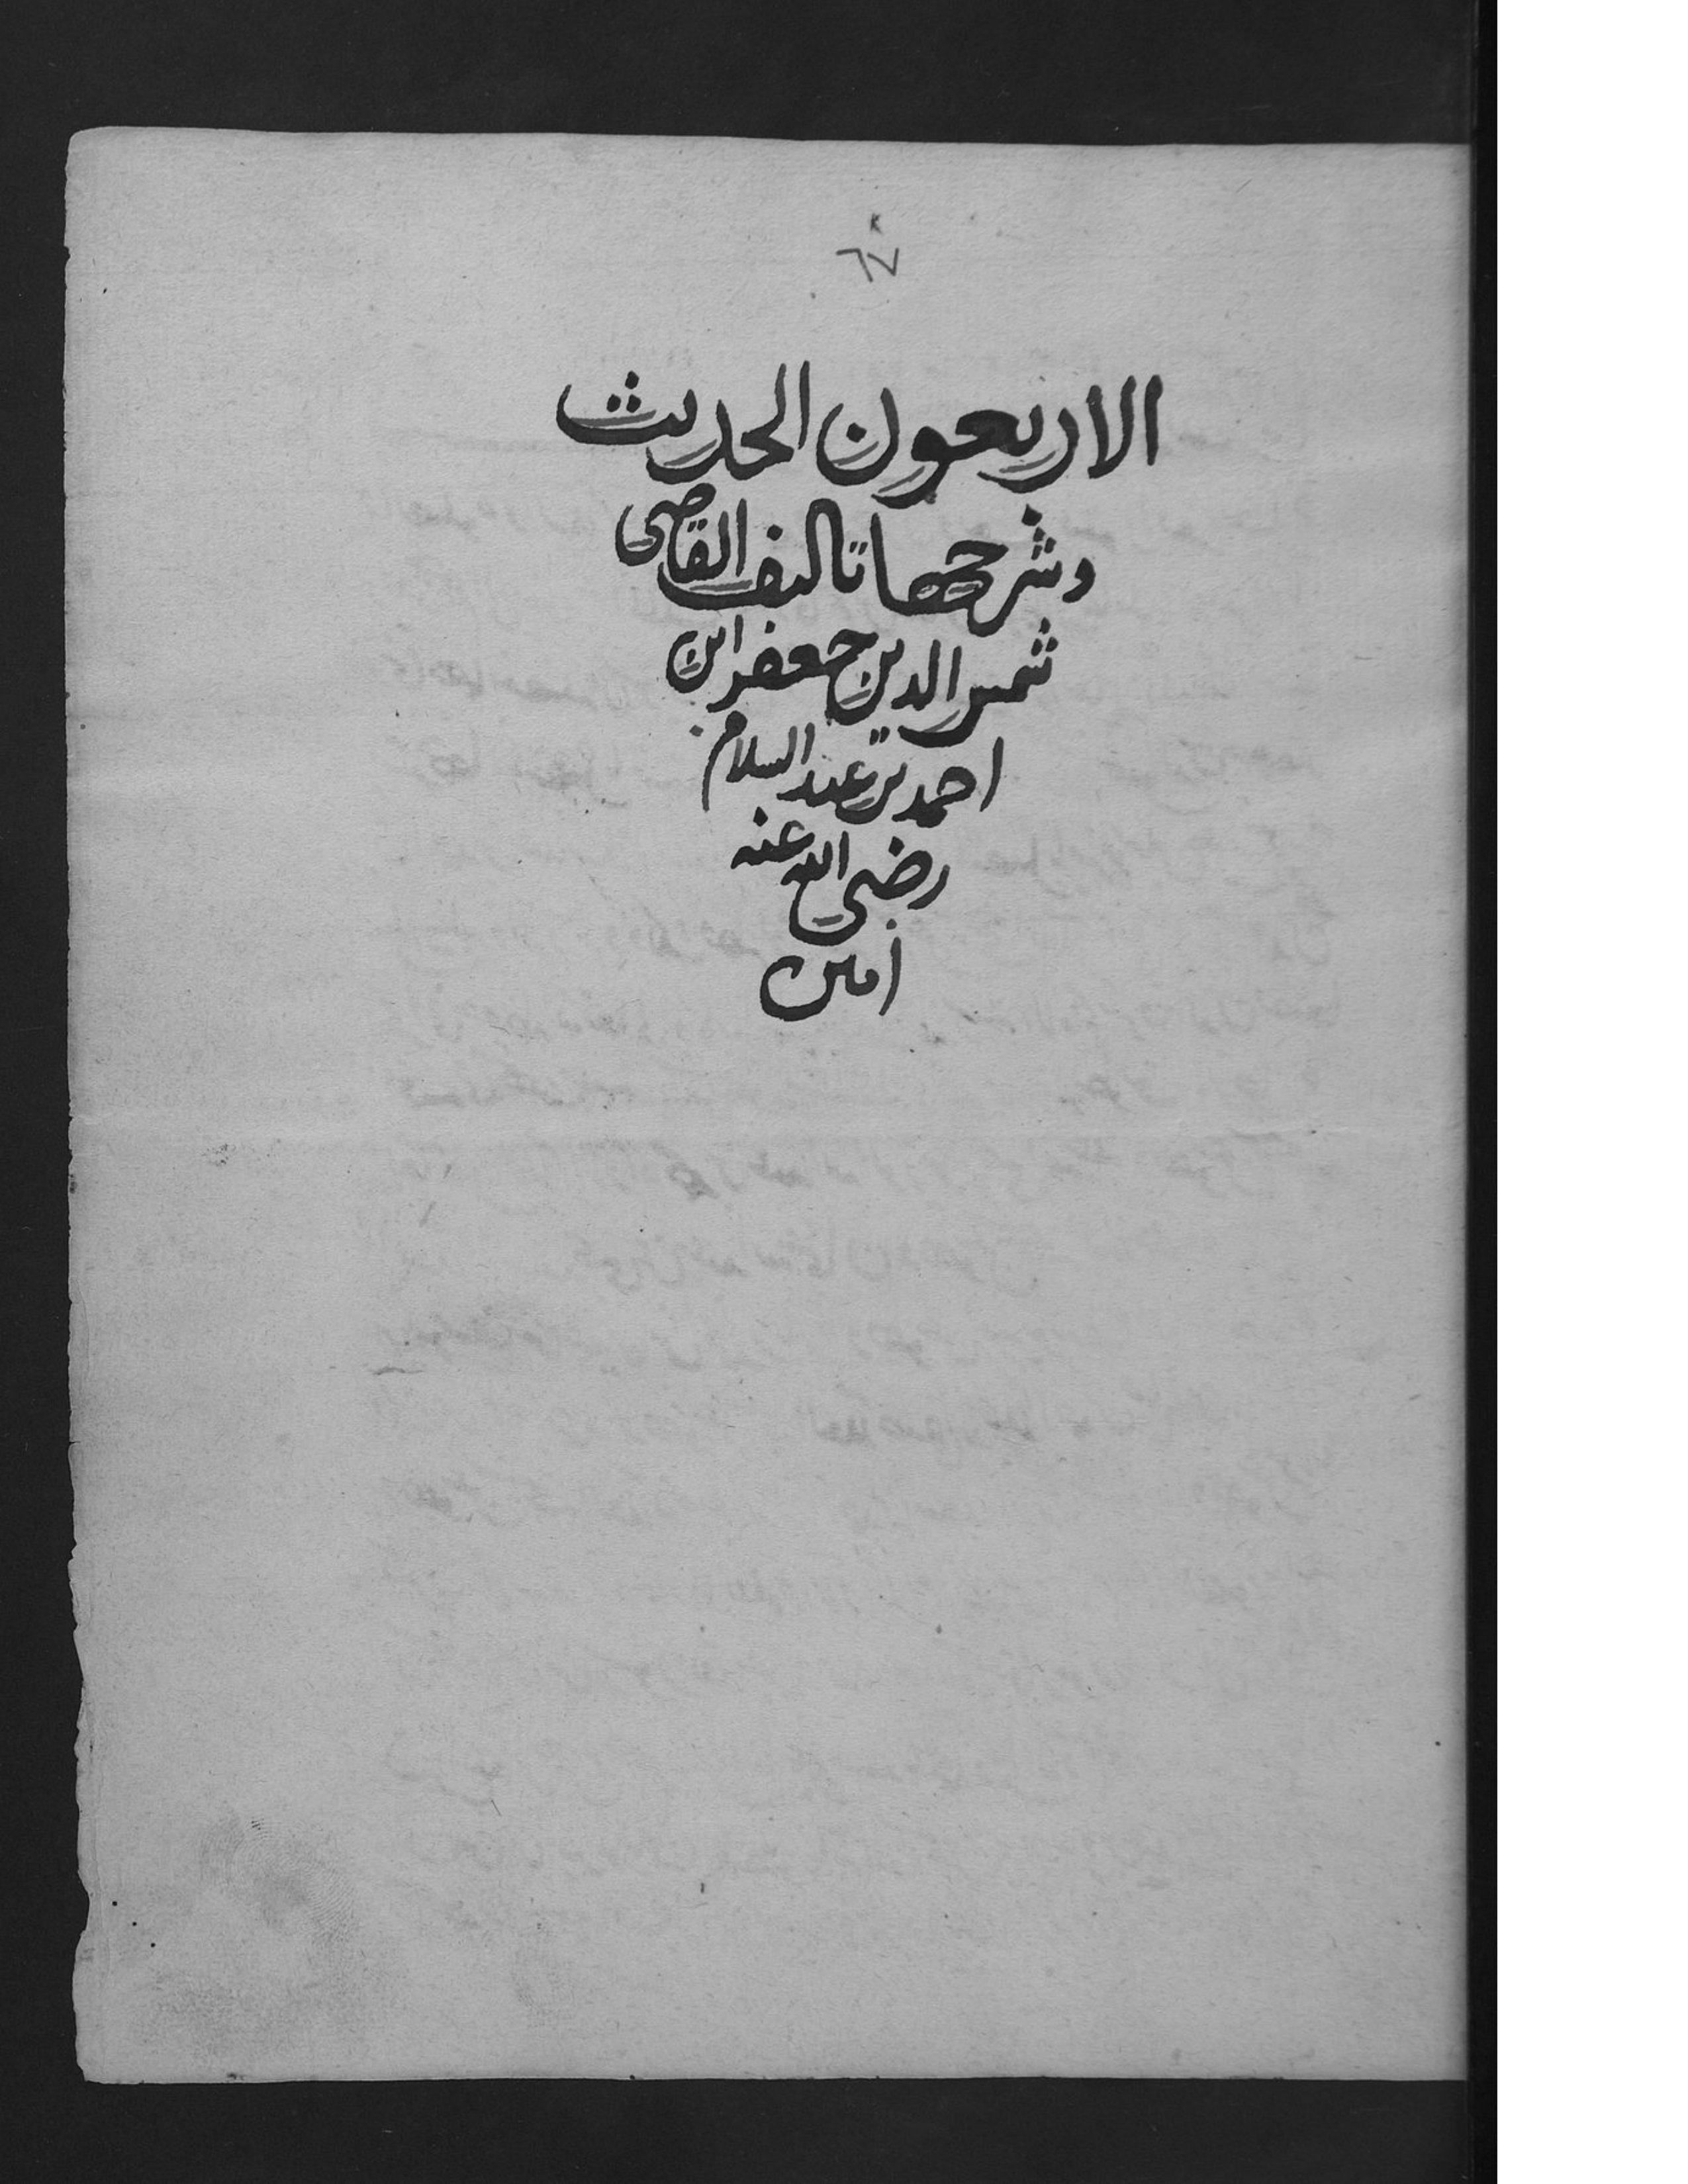 ٦٧
الاربعون الحديث
وشرحها تاليف القاضى
شمس الدين جعفر ابن
احمد بن عبد السلام
رضى الله عنه
امين